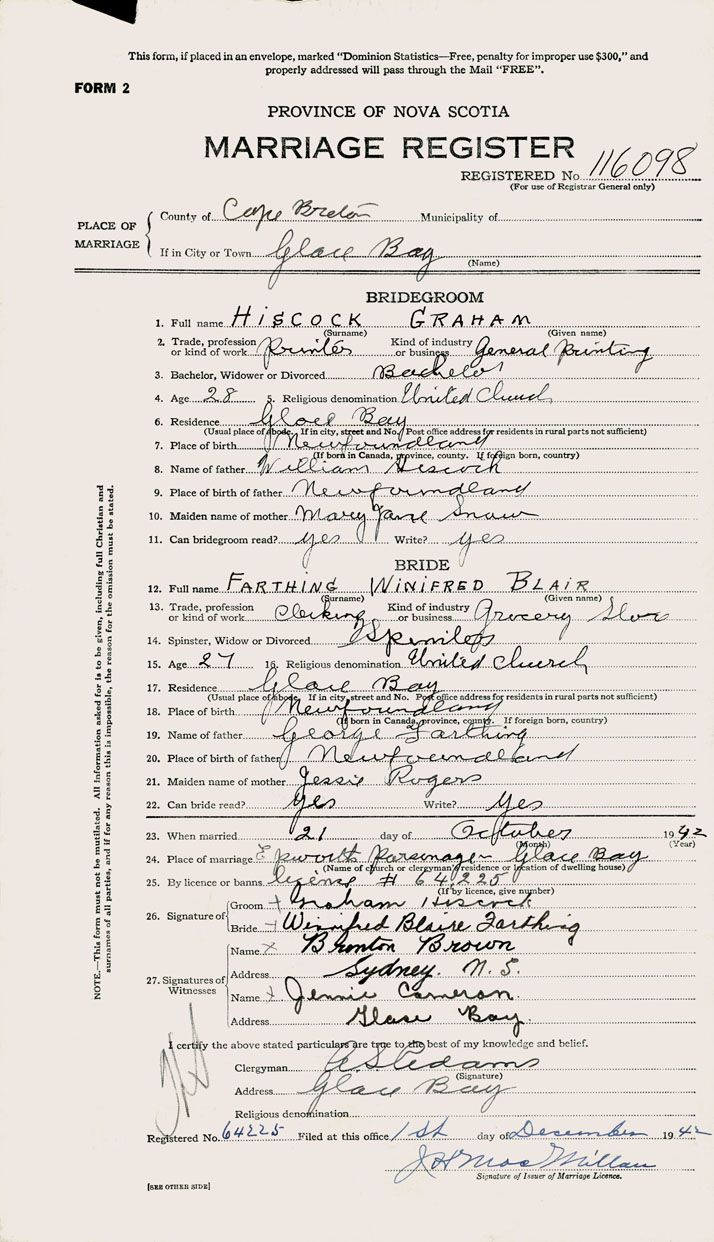 This form, if placed in an envelope, marked "Dominion Statistics—Free, penalty for improper use $300," and
properly addressed will pass through the Mail "FREE".
FORM 2
PROVINCE OF NOVA SCOTIA
MARRIAGE REGISTER
REGISTERED No 116098
(For use of Registrar General only)
PLACE OF MARRIAGE
County of Cape Breton Municipality of
If in City or Town Glace Bay
(Name)
BRIDEGROOM
1. Full name HISCOCK GRAHAM
(Surname) (Given name)
2. Trade, profession or kind of work printer Kind of industry or business General printing
3. Bachelor, Widower or Divorced Bachelor
4. Age 28 5. Religious denomination United Church
6. Residence Glace Bay
(Usual place of abode. If in city, street and No. Post office address for residents in rural parts not sufficient)
7. Place of birth Newfoundland
(If born in Canada, province, county. If foreign born, country)
8. Name of father William Hiscock
9. Place of birth of father Newfoundland
10. Maiden name of mother Mary Jane Snow
11. Can bridegroom read? yes Write? yes
BRIDE
12. Full name FARTHING WINIFRED BLAIR
(Surname) (Given name)
13. Trade, profession or kind of work Clerking Kind of industry or business Grocery Store
14. Spinster, Widow or Divorced Spinster
15. Age 27 16. Religious denomination United Church
17. Residence Glace Bay
(Usual place of abode. If in city, street and No. Post office address for residents in rural parts not sufficient)
18. Place of birth Newfoundland
(If born in Canada, province, county. If foreign born, country)
19. Name of father George Farthing
20. Place of birth of father Newfoundland
21. Maiden name of mother Jessie Rogers
22. Can bride read? yes Write? yes
23. When married 21 day of October 1942
(Month) (Year)
24. Place of marriage Epworth Parsonage - Glace Bay
(Name of church or clergyman's residence or location of dwelling house)
25. By licence or banns license # 64,225
(If by licence, give number)
26. Signature of
Groom + Graham Hiscock
Bride + Winifred Blaire Farthing
27. Signatures of Witnesses
Name x Brenton Brown
Address Sydney. N. S.
Name x Jennie Cameron.
Address Glace Bay.
I certify the above stated particulars are true to the best of my knowledge and belief.
Clergyman Adams
(Signature)
Address Glace Bay
Religious denomination
Registered No. 64225 Filed at this office 1st day of December 1942
J H MacMillan
Signature of Issuer of Marriage Licence.
[SEE OTHER SIDE]
NOTE.—This form must not be mutilated. All information asked for is to be given, including full Christian and
surnames of all parties, and if for any reason this is impossible, the reason for the omission must be stated.